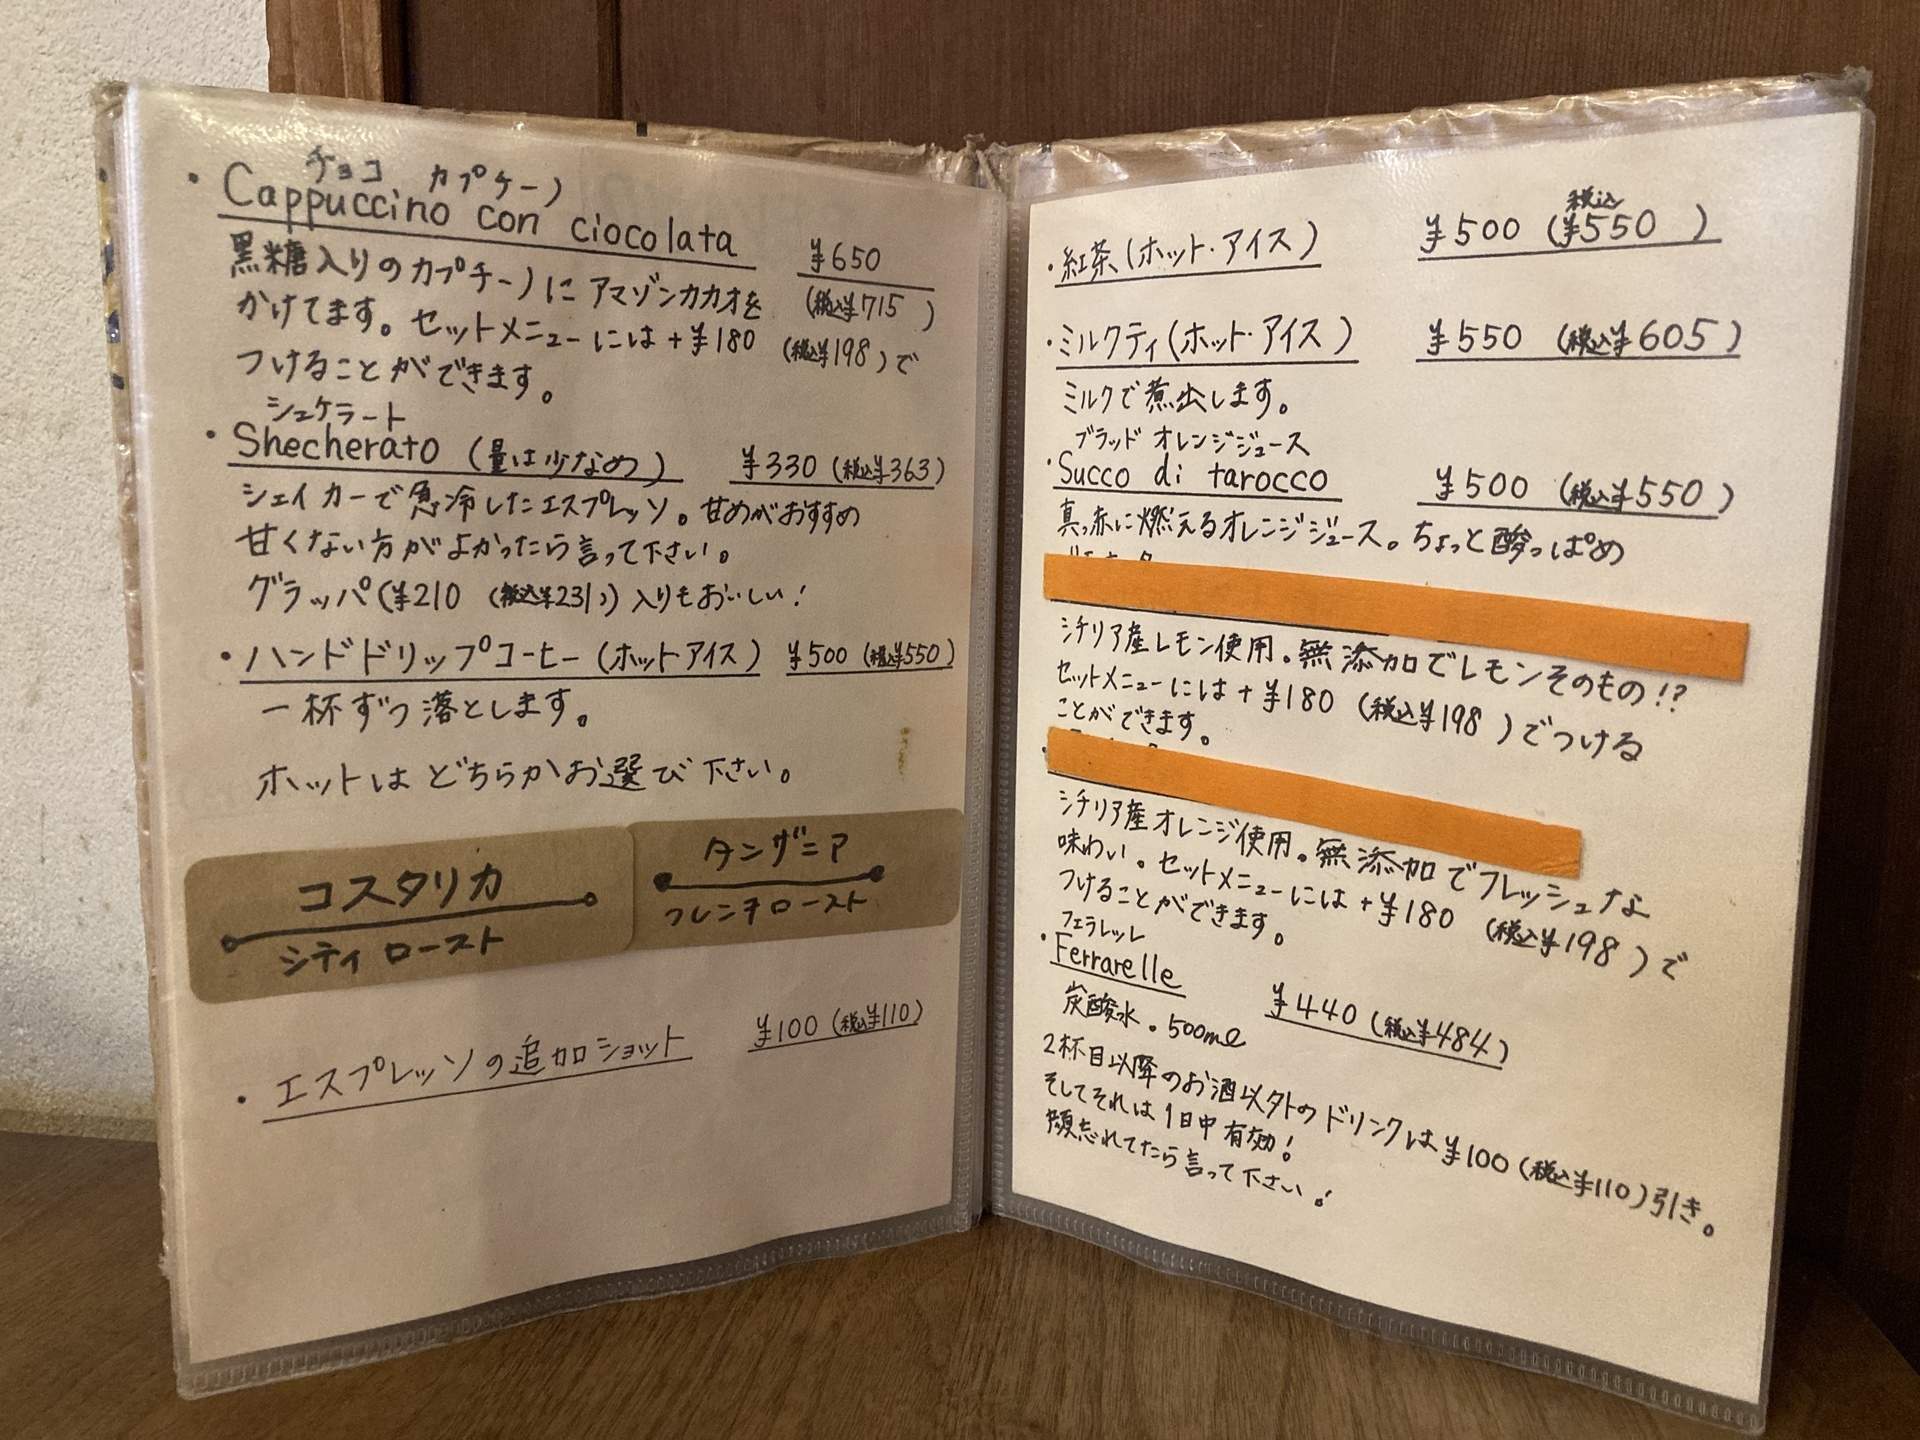 チョコ カプケーノ
・Cappuccino con ciocolata
¥650
黒糖入りのカプチーノにアマゾンカカオを
(税込¥715)
かけてます。セットメニューには+¥180 (税込¥198)で
つけることができます。
シェケラート
・Shecherato (量は少なめ) ¥330 (税込¥363)
シェイカーで急冷したエスプレッソ。甘めがおすすめ
甘くない方がよかったら言って下さい。
グラッパ(¥210 (税込¥231))入りもおいしい!
・ハンドドリップコーヒー(ホットアイス) ¥500 (税込¥550)
一杯ずつ落とします。
ホットはどちらかお選び下さい。
コスタリカ
シティロースト
タンザニア
フレンチロースト
・エスプレッソの追加ショット ¥100 (税込¥110)
・紅茶(ホット・アイス) ¥500 (税込¥550)
・ミルクティ(ホット・アイス) ¥550 (税込¥605)
ミルクで煮出します。
ブラッドオレンジジュース
・Succo di tarocco ¥500 (税込¥550)
真っ赤に燃えるオレンジジュース。ちょっと酸っぱめ
シチリア産レモン使用。無添加でレモンそのもの!?
セットメニューには+¥180 (税込¥198)でつける
ことができます。
シチリア産オレンジ使用。無添加でフレッシュな
味わい。セットメニューには+¥180 (税込¥198)で
つけることができます。
フェラレッレ
・Ferrarelle
¥440 (税込¥484)
炭酸水。500ml
2杯目以降のお酒以外のドリンクは¥100 (税込¥110)引き。
そしてそれは1日中有効!
顔忘れてたら言って下さい!